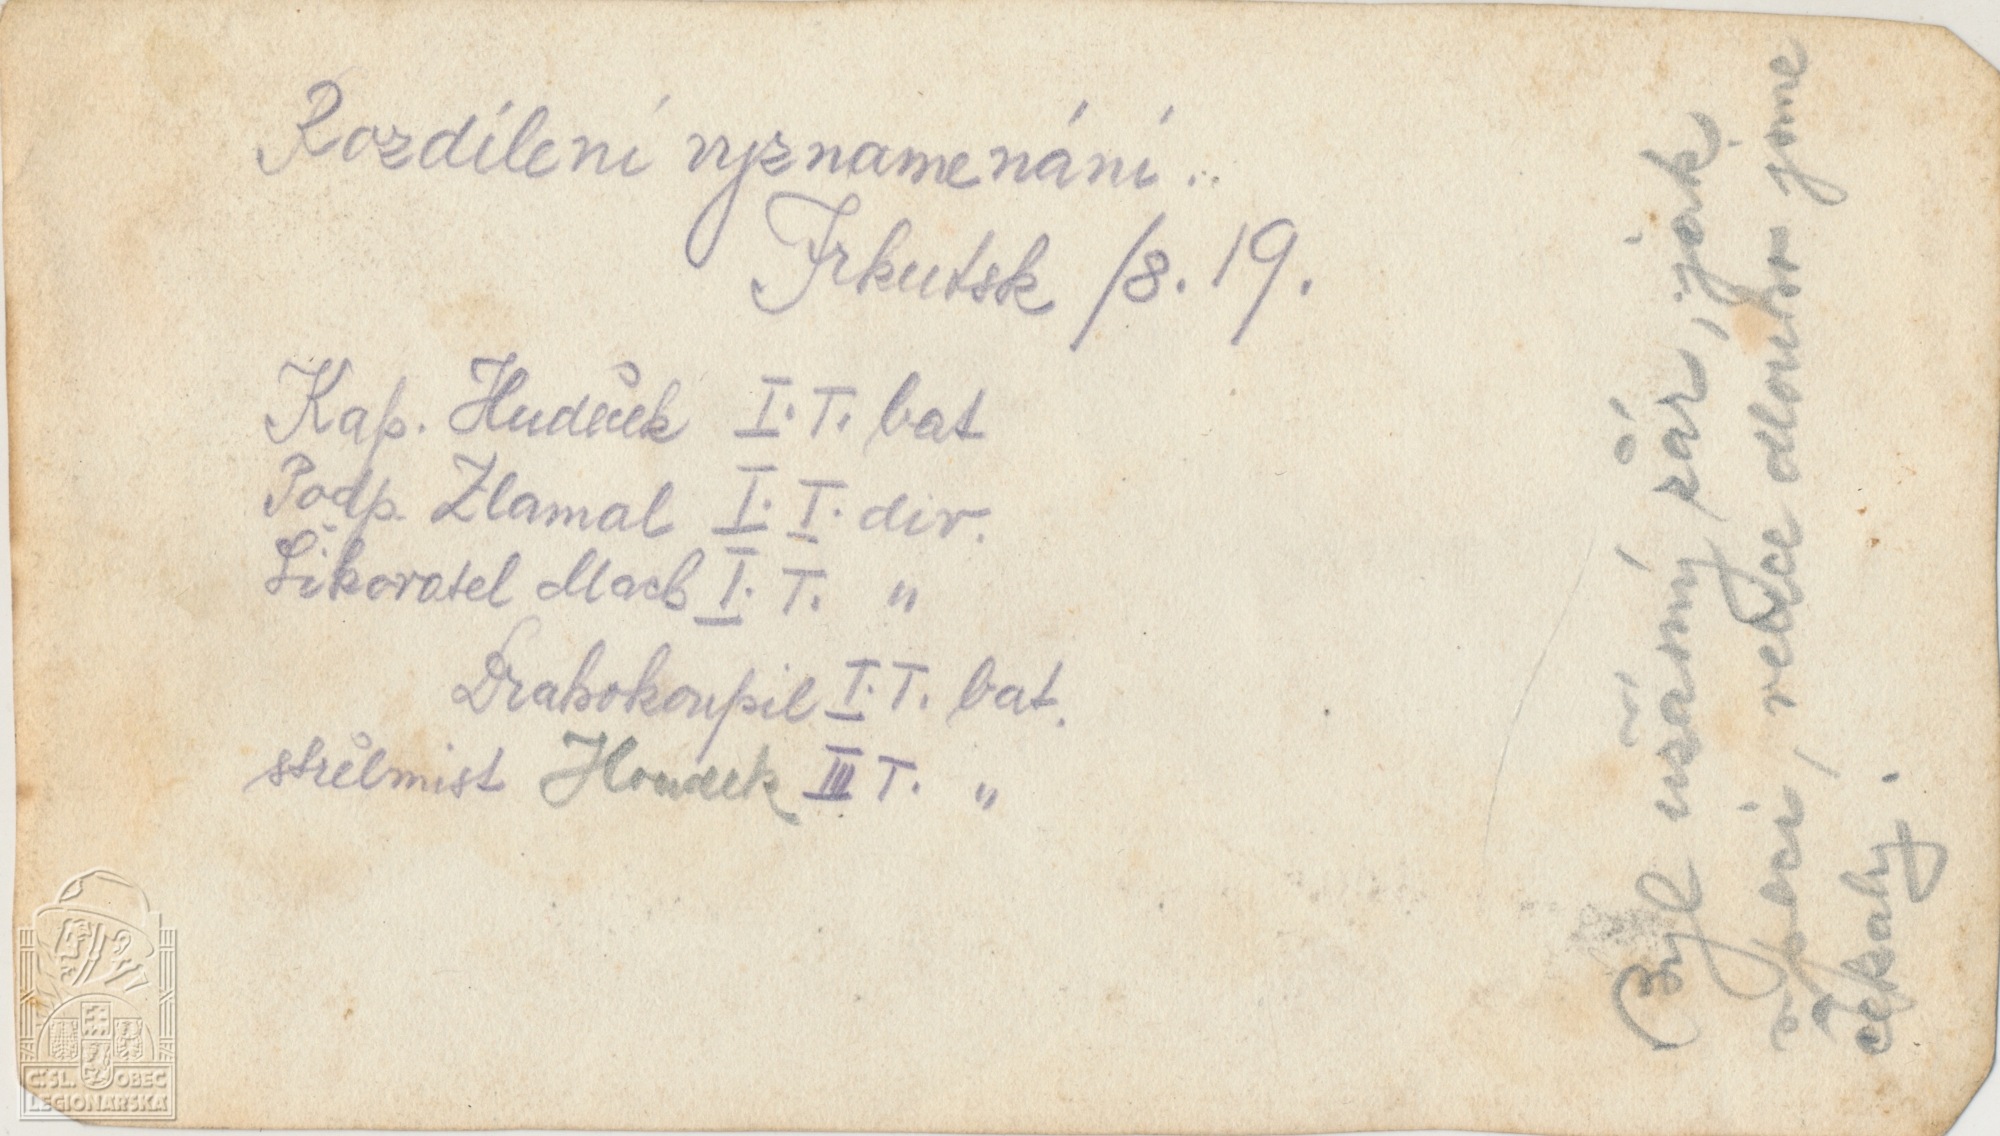 Rozdílení vyznamenání.
Irkutsk /8. 19.
Kap. Hudeček I. T. bat
Podp. Zlamal I. T. div.
Šikovatel Mach I. T. "
Drahokoupil I. T. bat.
střelmist Houdek III T. "
Byl úžasný žár, jak
v peci, velice dlouho jsme
čekaly.
Č.SL. OBEC
LEGIONÁŘSKÁ